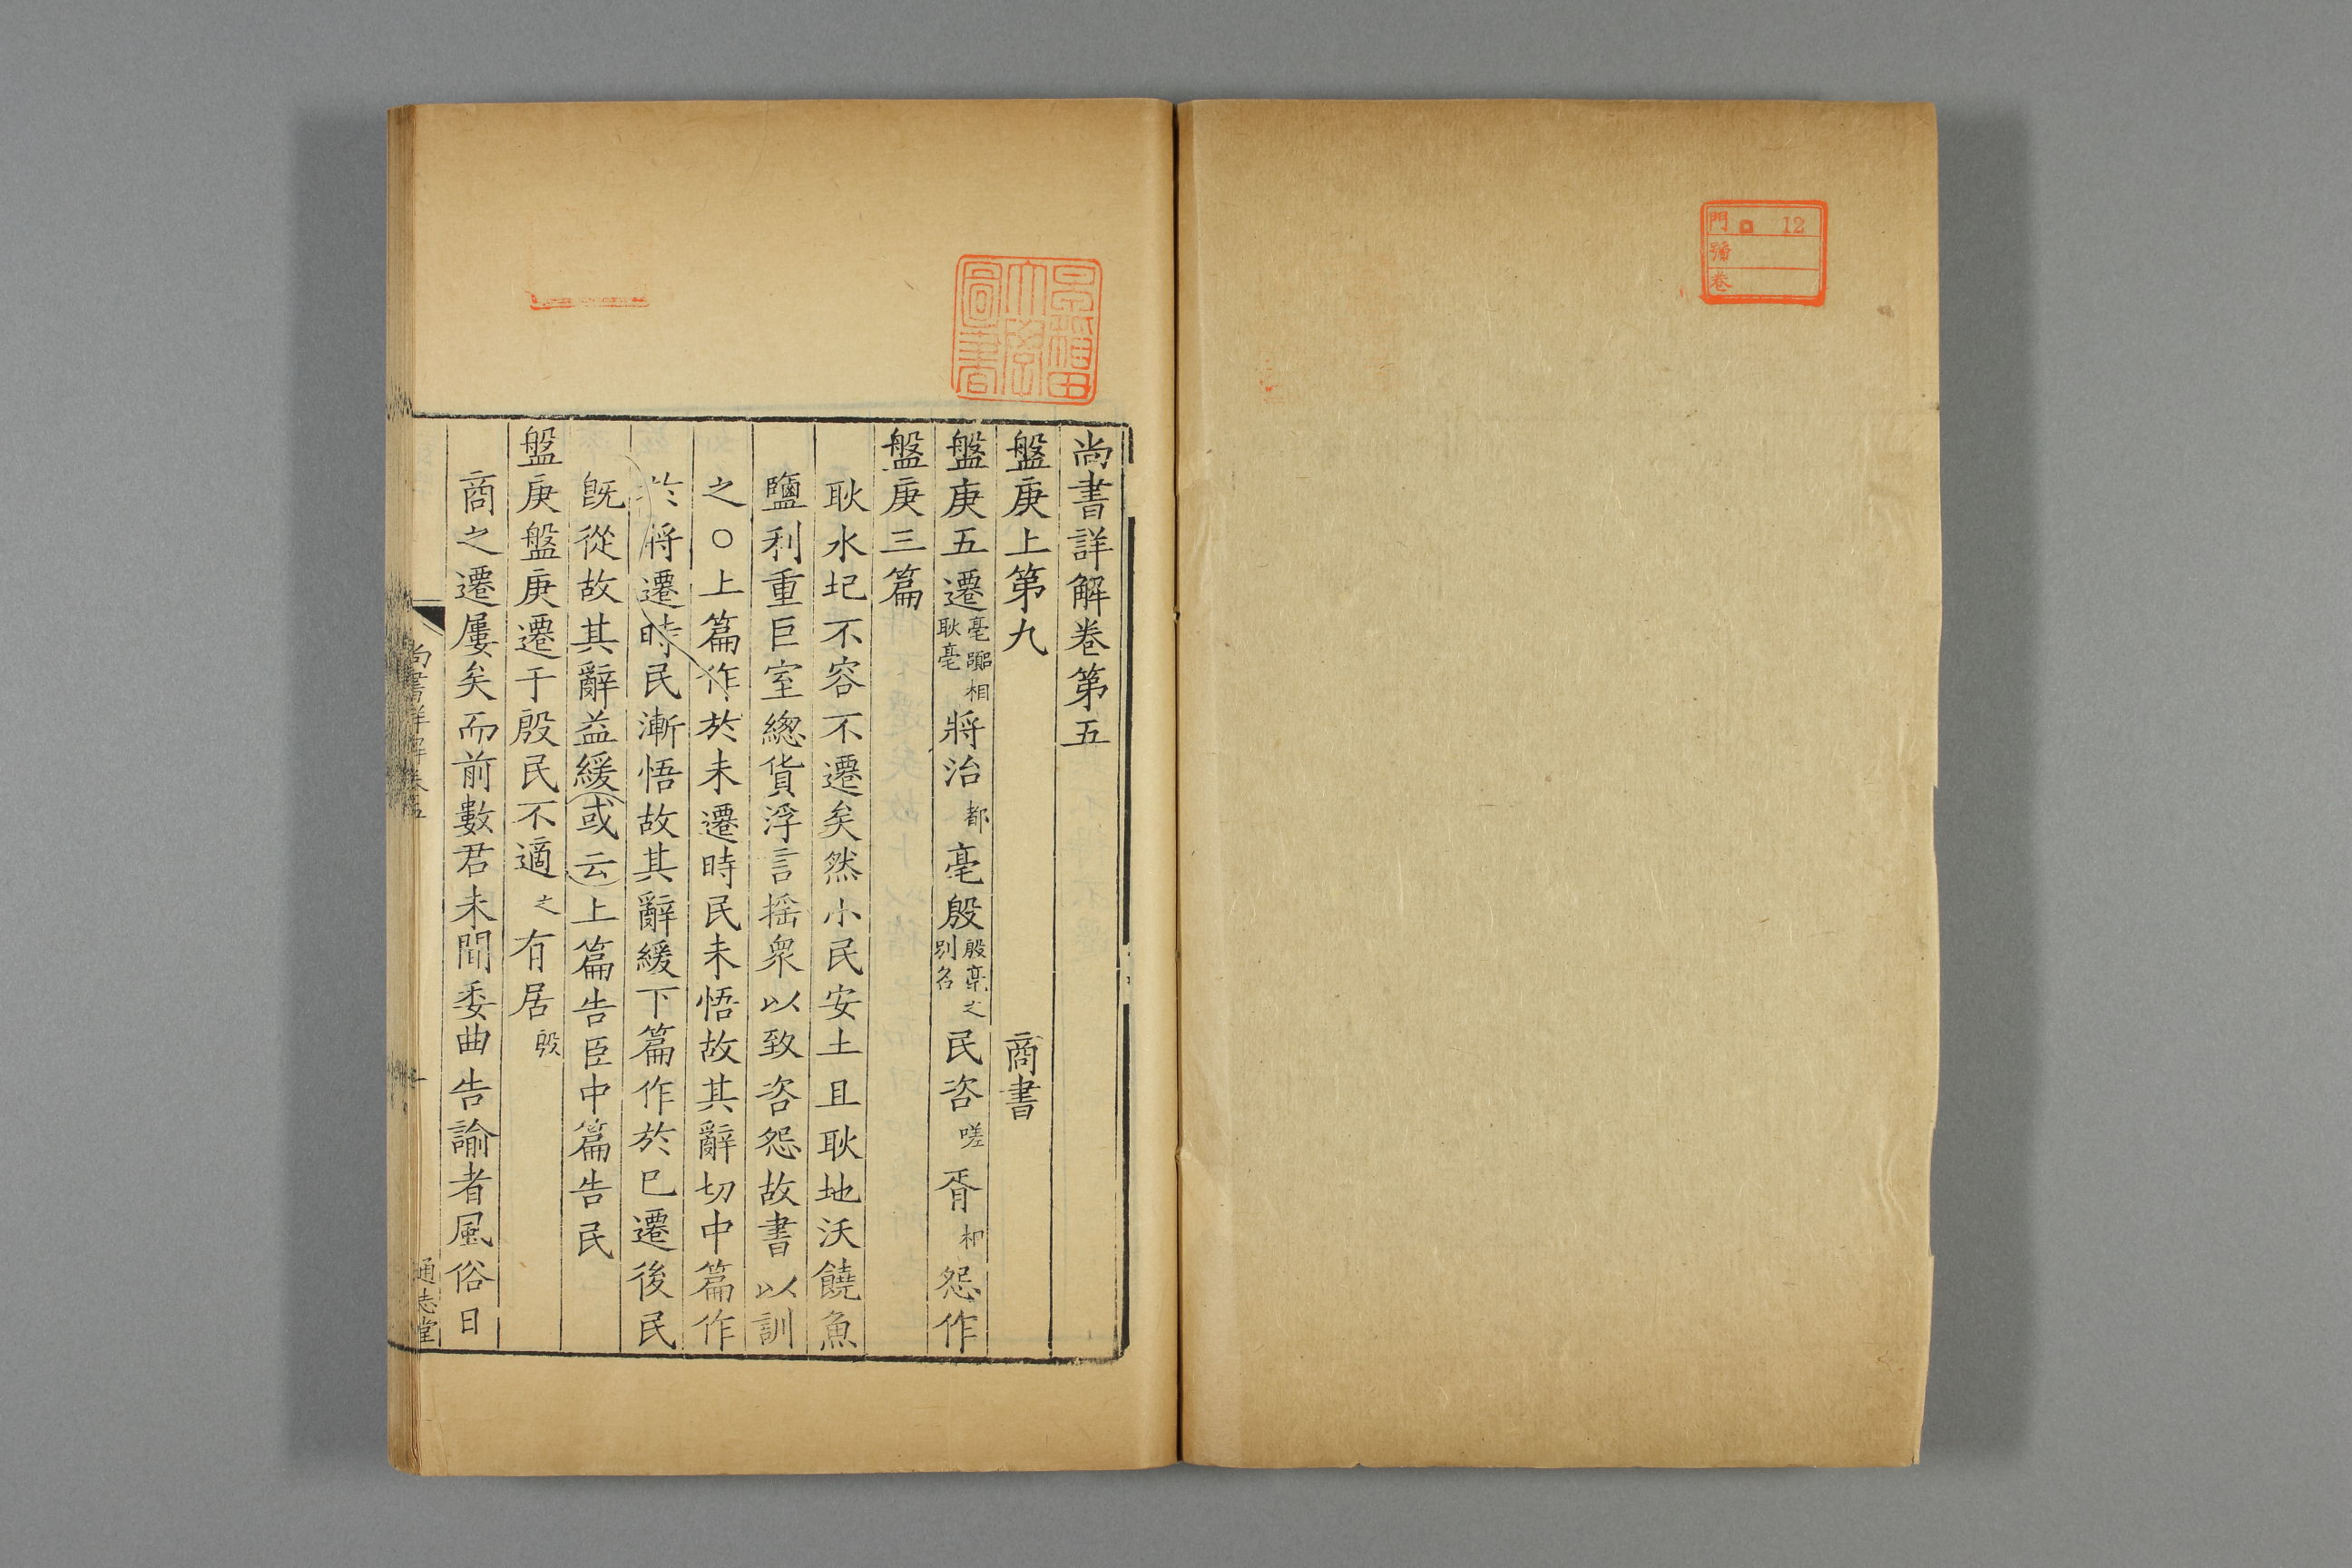 門 ロ 12
號
卷
早稲田
大學
圖書
尚書詳解卷第五
盤庚上第九 商書
盤庚五遷亳囂相耿亳將治都亳殷殷亳之別名民咨嗟胥相怨作
盤庚三篇
耿水圮不容不遷矣然小民安土且耿地沃饒魚
鹽利重巨室總貨浮言揺衆以致咨怨故書以訓
之○上篇作於未遷時民未悟故其辭切中篇作
於將遷時民漸悟故其辭緩下篇作於巳遷後民
旣從故其辭益緩或云上篇告臣中篇告民
盤庚盤庚遷于殷民不適之有居殷
商之遷屢矣而前數君未聞委曲告諭者風俗日
尚書詳解卷五
一
通志堂